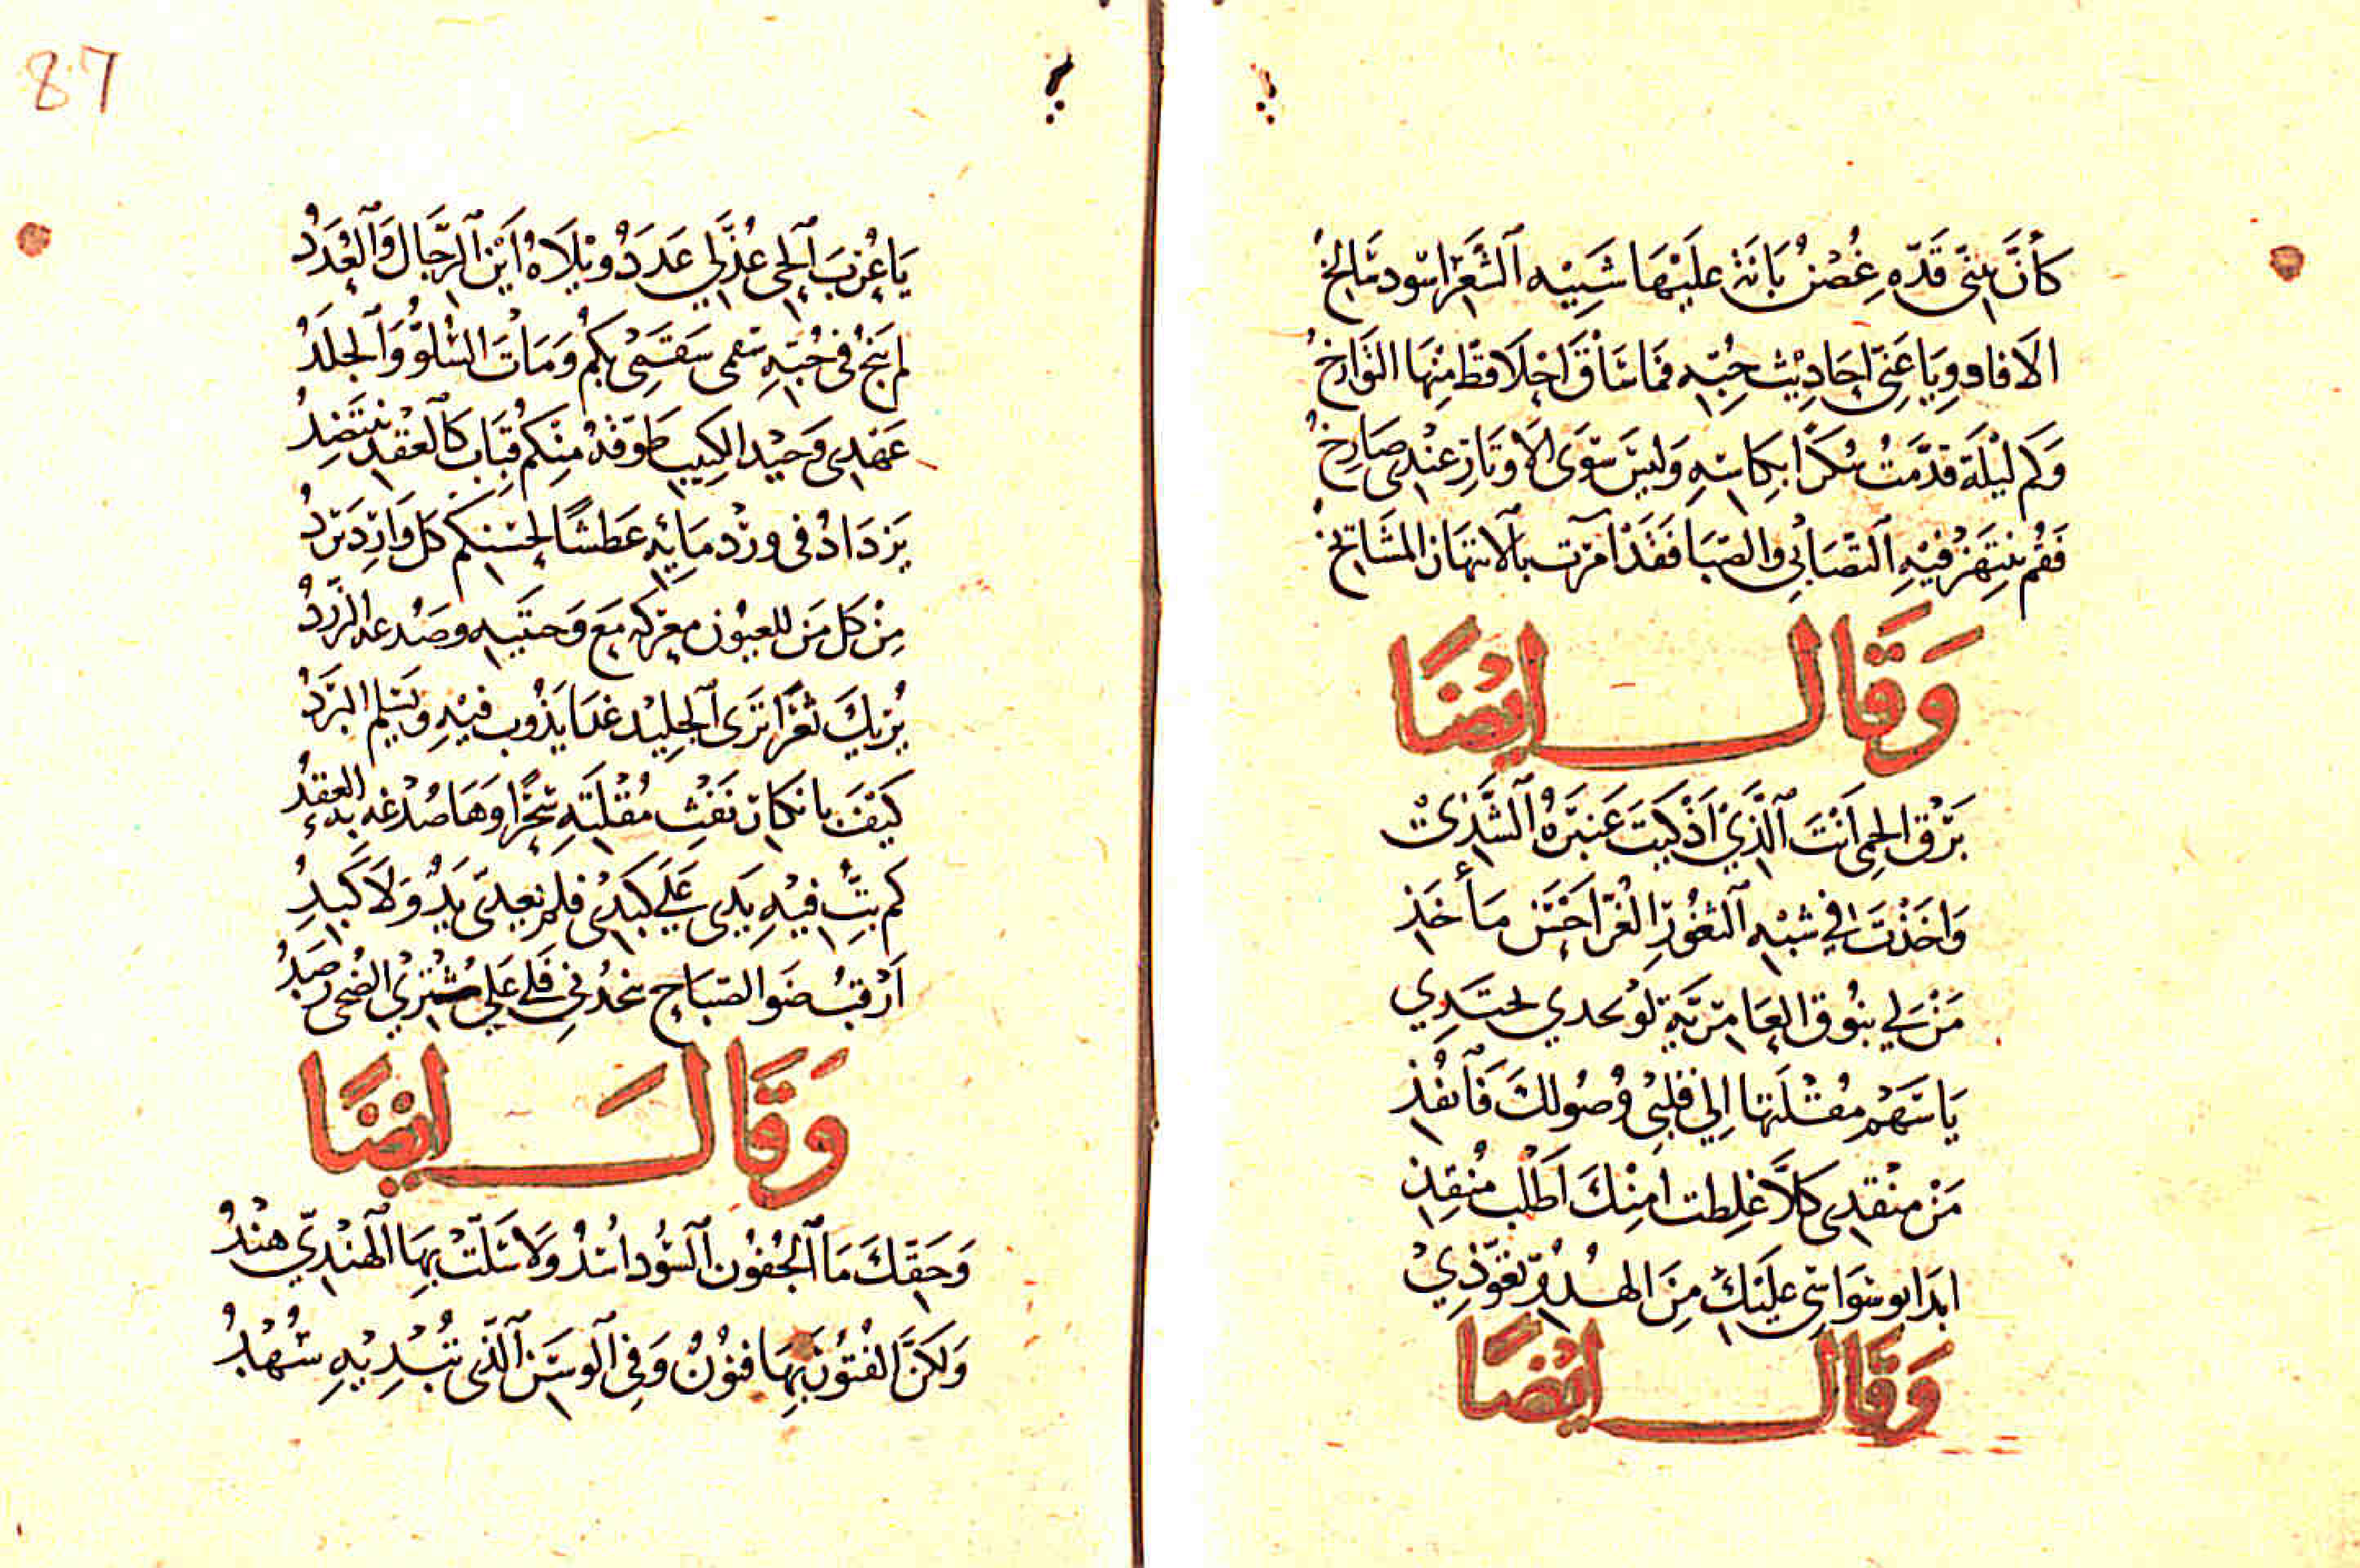 كَأَنَّ تثنى قَدّهِ غُصْنُ بَانَة عليْهَا شَبِيْه الشَّعْر اسود سَالِخُ
الا فاروِيَا عَنِّى احَادِيْث حُبّه فَمَا سَاقَ احْلَا قطّ مِنْهَا التَوَارِخُ
وَكم ليْلَة قدَّمتُ سُكرًا بكاسَهِ وَليسَ سِوَى الاوتَارِ عنْدِى صَارِخُ
فَقُم ننتَهزْ فيْهِ التّصَابِي والصّبَا فَقَدْ امرَت بالانتهَاز المشَايخُ
وَقَال ايْضًا
بَرْق الحِمى اَنْتَ الّذَيْ اَذْكيتَ عَنبَرَهُ الشَّذِيْ
وَاخَذْتَ فِي شبْهِ الثغُوْرِ الغُرّ احَسَن مَأخَذِ
مَنْ لِي بنُوق العَامريَّةِ لوْ تحدي تحتَدِي
يَا سَهْم مُقْلَتهَا اِلي قلبِيْ وُصُولكَ فَانفُذِ
مَنْ منْقدِى كلاَّ غلِطت امِنْكَ اَطْلب مُنْقِذِ
ابدَا بوسْوَاسِى عليْكَ مِنَ الهـدُوّ تعَوّذِيْ
وَقَال ايْضًا
87
يَا عُرْبَ الحِى عُذَّلِي عَدَدُ ويْلَاهُ اَيْنَ الرّجَال وَالعُدَدُ
لم ينجُ في حُبّهِ سمى سَقَمِىْ بكمُ وَمَاتَ السُّلوُّ وَالجلَدُ
عَهْدِى وَجيْد الكثيبِ طوّقهُ منكمُ قِبَاب كَالعقْدِ تنتَضِدُ
يَزدَادُ في ورْد مَائِهِ عَطشًا لحسْنِكم كل وَارِدٍ يَرِدُ
مِنْ كل مَن للعيُون معْركه مَع وَجنتيه وصُدغه الزّرَدُ
يُرْيكَ ثغْرًا تَرَى الجليْد غدَا يَذُوب فيْهِ وَيَسْلم البَرَدُ
كَيْفَ بانكار نَفْثِ مُقْلَتِهِ سِحْرًا وَهَا صُدْغه به العقدُ
كم بتُّ فيْهِ يَدِى عَلَى كبَدِىْ فلم تعِد لي يَدٌ وَلَا كَبِدُ
اَرْقبُ ضَوَ الصّبَاحِ مِنخدُ في فلِي عَلي مُشْتَرِيْ الضُحى رَصَدُ
وَقَالَ ايْضًا
وَحَقّكَ مَا الجُفُون السُّود اسْدُ وَلا سَلّتْ بِهَا الهنْدِيّ هنْدُ
وَلكنَّ الفُتُوْنَ بِهَا فنُوْنُ وَفِي الوسَنِ الذّى تُبْدِيْهِ شُهْدُ